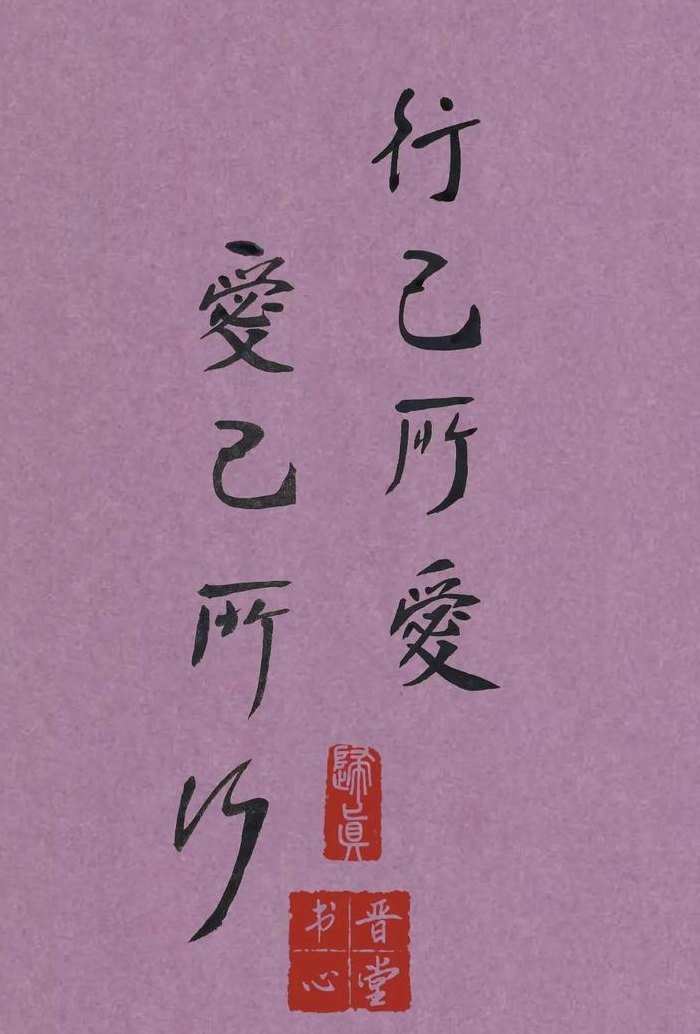 行己所愛
愛己所行
歸真
晋堂
书心